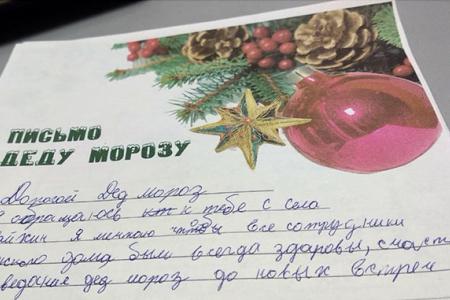 ПИСЬМО
ДЕДУ МОРОЗУ
Дорогой Дед мороз
обращаюсь к тебе с села
Я мечтаю чтобы все сотрудники
дома были всегда здоровы,
дед мороз до новых встреч